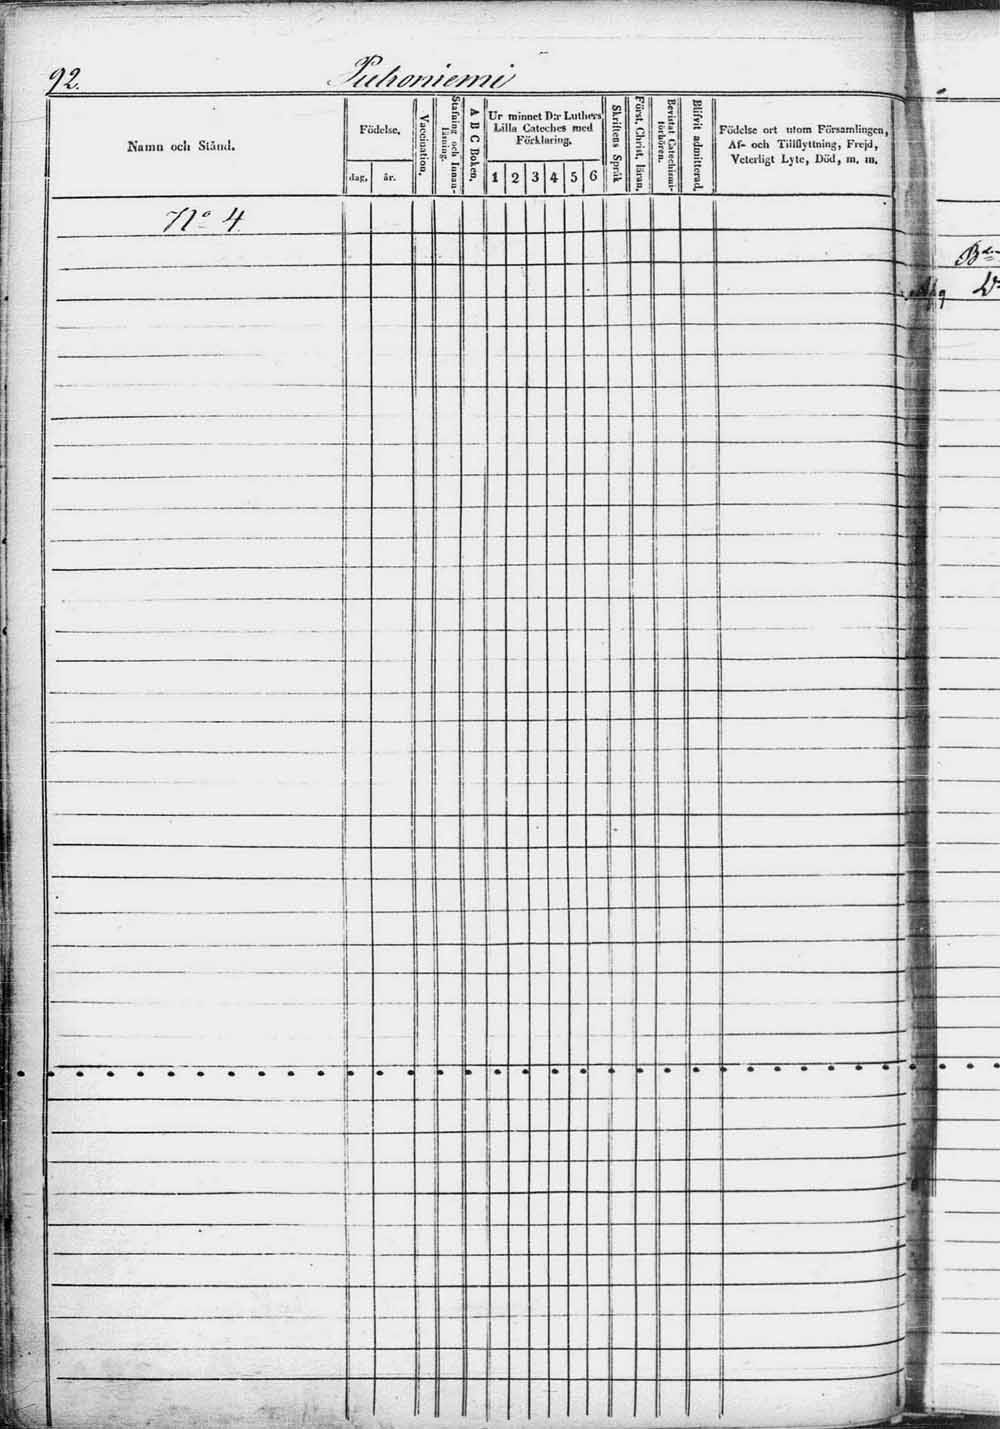 92. Puhoniemi
Namn och Stånd.
Födelse,
dag, år.
Vaccination,
Stafning och Innan-
läsning.
A B C Boken,
Ur minnet D:r Luthers
Lilla Cateches med
Förklaring,
1 2 3 4 5 6
Skriftens Språk
Först. Christ. läran,
Bevistat Catechismi-
förhören.
Blifvit admitterad,
Födelse ort utom Församlingen,
Af- och Tillflyttning, Frejd,
Veterligt Lyte, Död, m. m.
No 4